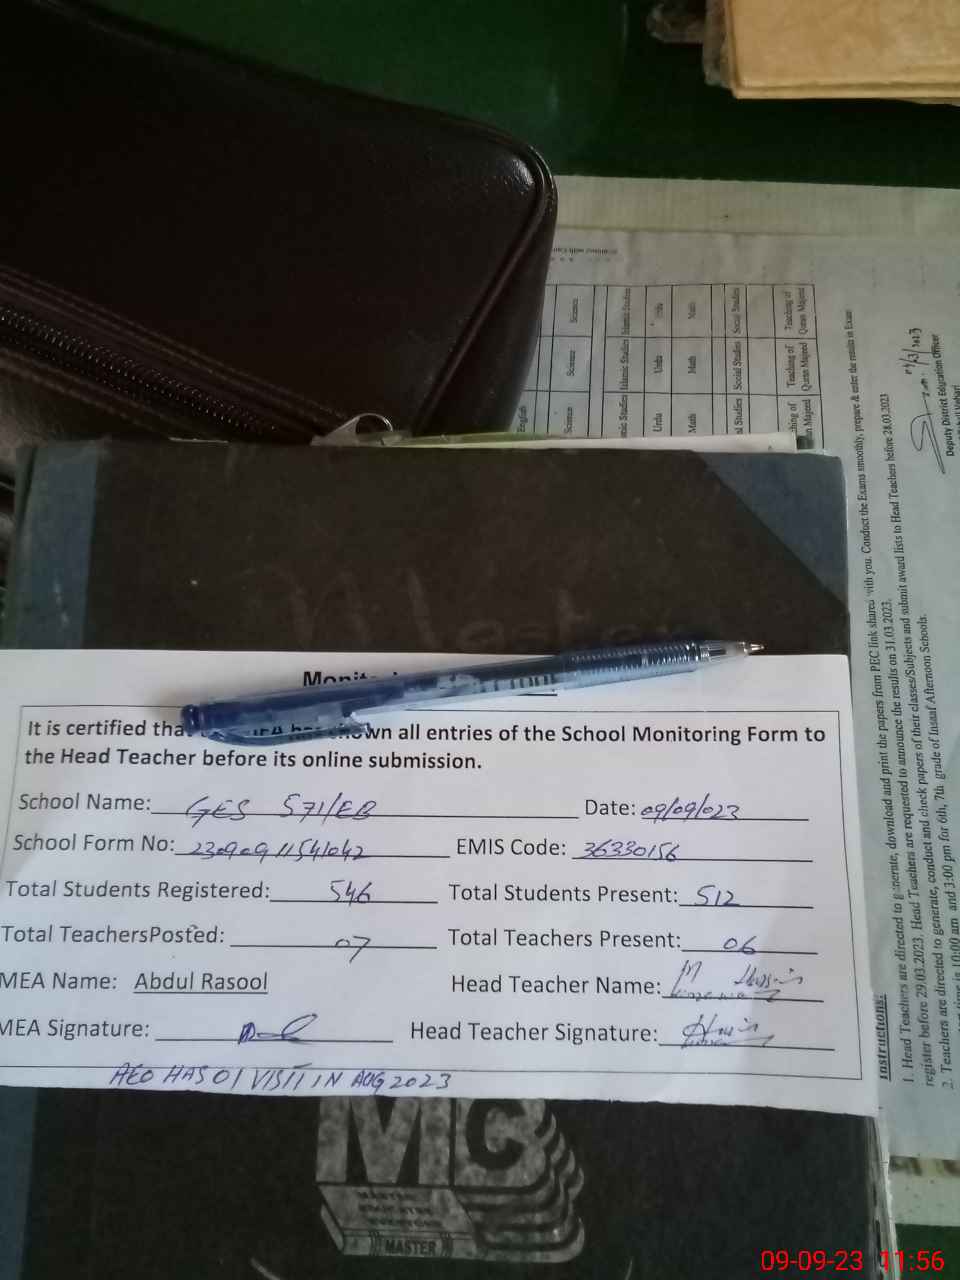 It is certified tha n all entries of the School Monitoring Form to
the Head Teacher before its online submission.
School Name: GES 571/EB Date: 09/09/023
School Form No: 23090911541042 EMIS Code: 36330156
Total Students Registered: 546 Total Students Present: 512
Total TeachersPosted: 07 Total Teachers Present: 06
MEA Name: Abdul Rasool Head Teacher Name:
MEA Signature: Head Teacher Signature:
AEO HAS 01 VISIT IN AUG 2023
MC
MASTER
Master
English
Science Science Science
Islamic Studies Islamic Studies
Urdu Urdu Urdu
Math Math Math
Social Studies Social Studies
Teaching of Quran Majeed Teaching of Quran Majeed
Deputy District Education Officer
Instructions:
1. Head Teachers are directed to generate, download and print the papers from PEC link shared with you. Conduct the Exams smoothly, prepare & enter the results in Exam
register before 29.03.2023. Head Teachers are requested to announce the results on 31.03.2023.
2. Teachers are directed to generate, conduct and check papers of their classes/Subjects and submit award lists to Head Teachers before 28.03.2023
time is 10:00 am and 3:00 pm for 6th, 7th grade of Insaaf Afternoon Schools.
09-09-23 11:56